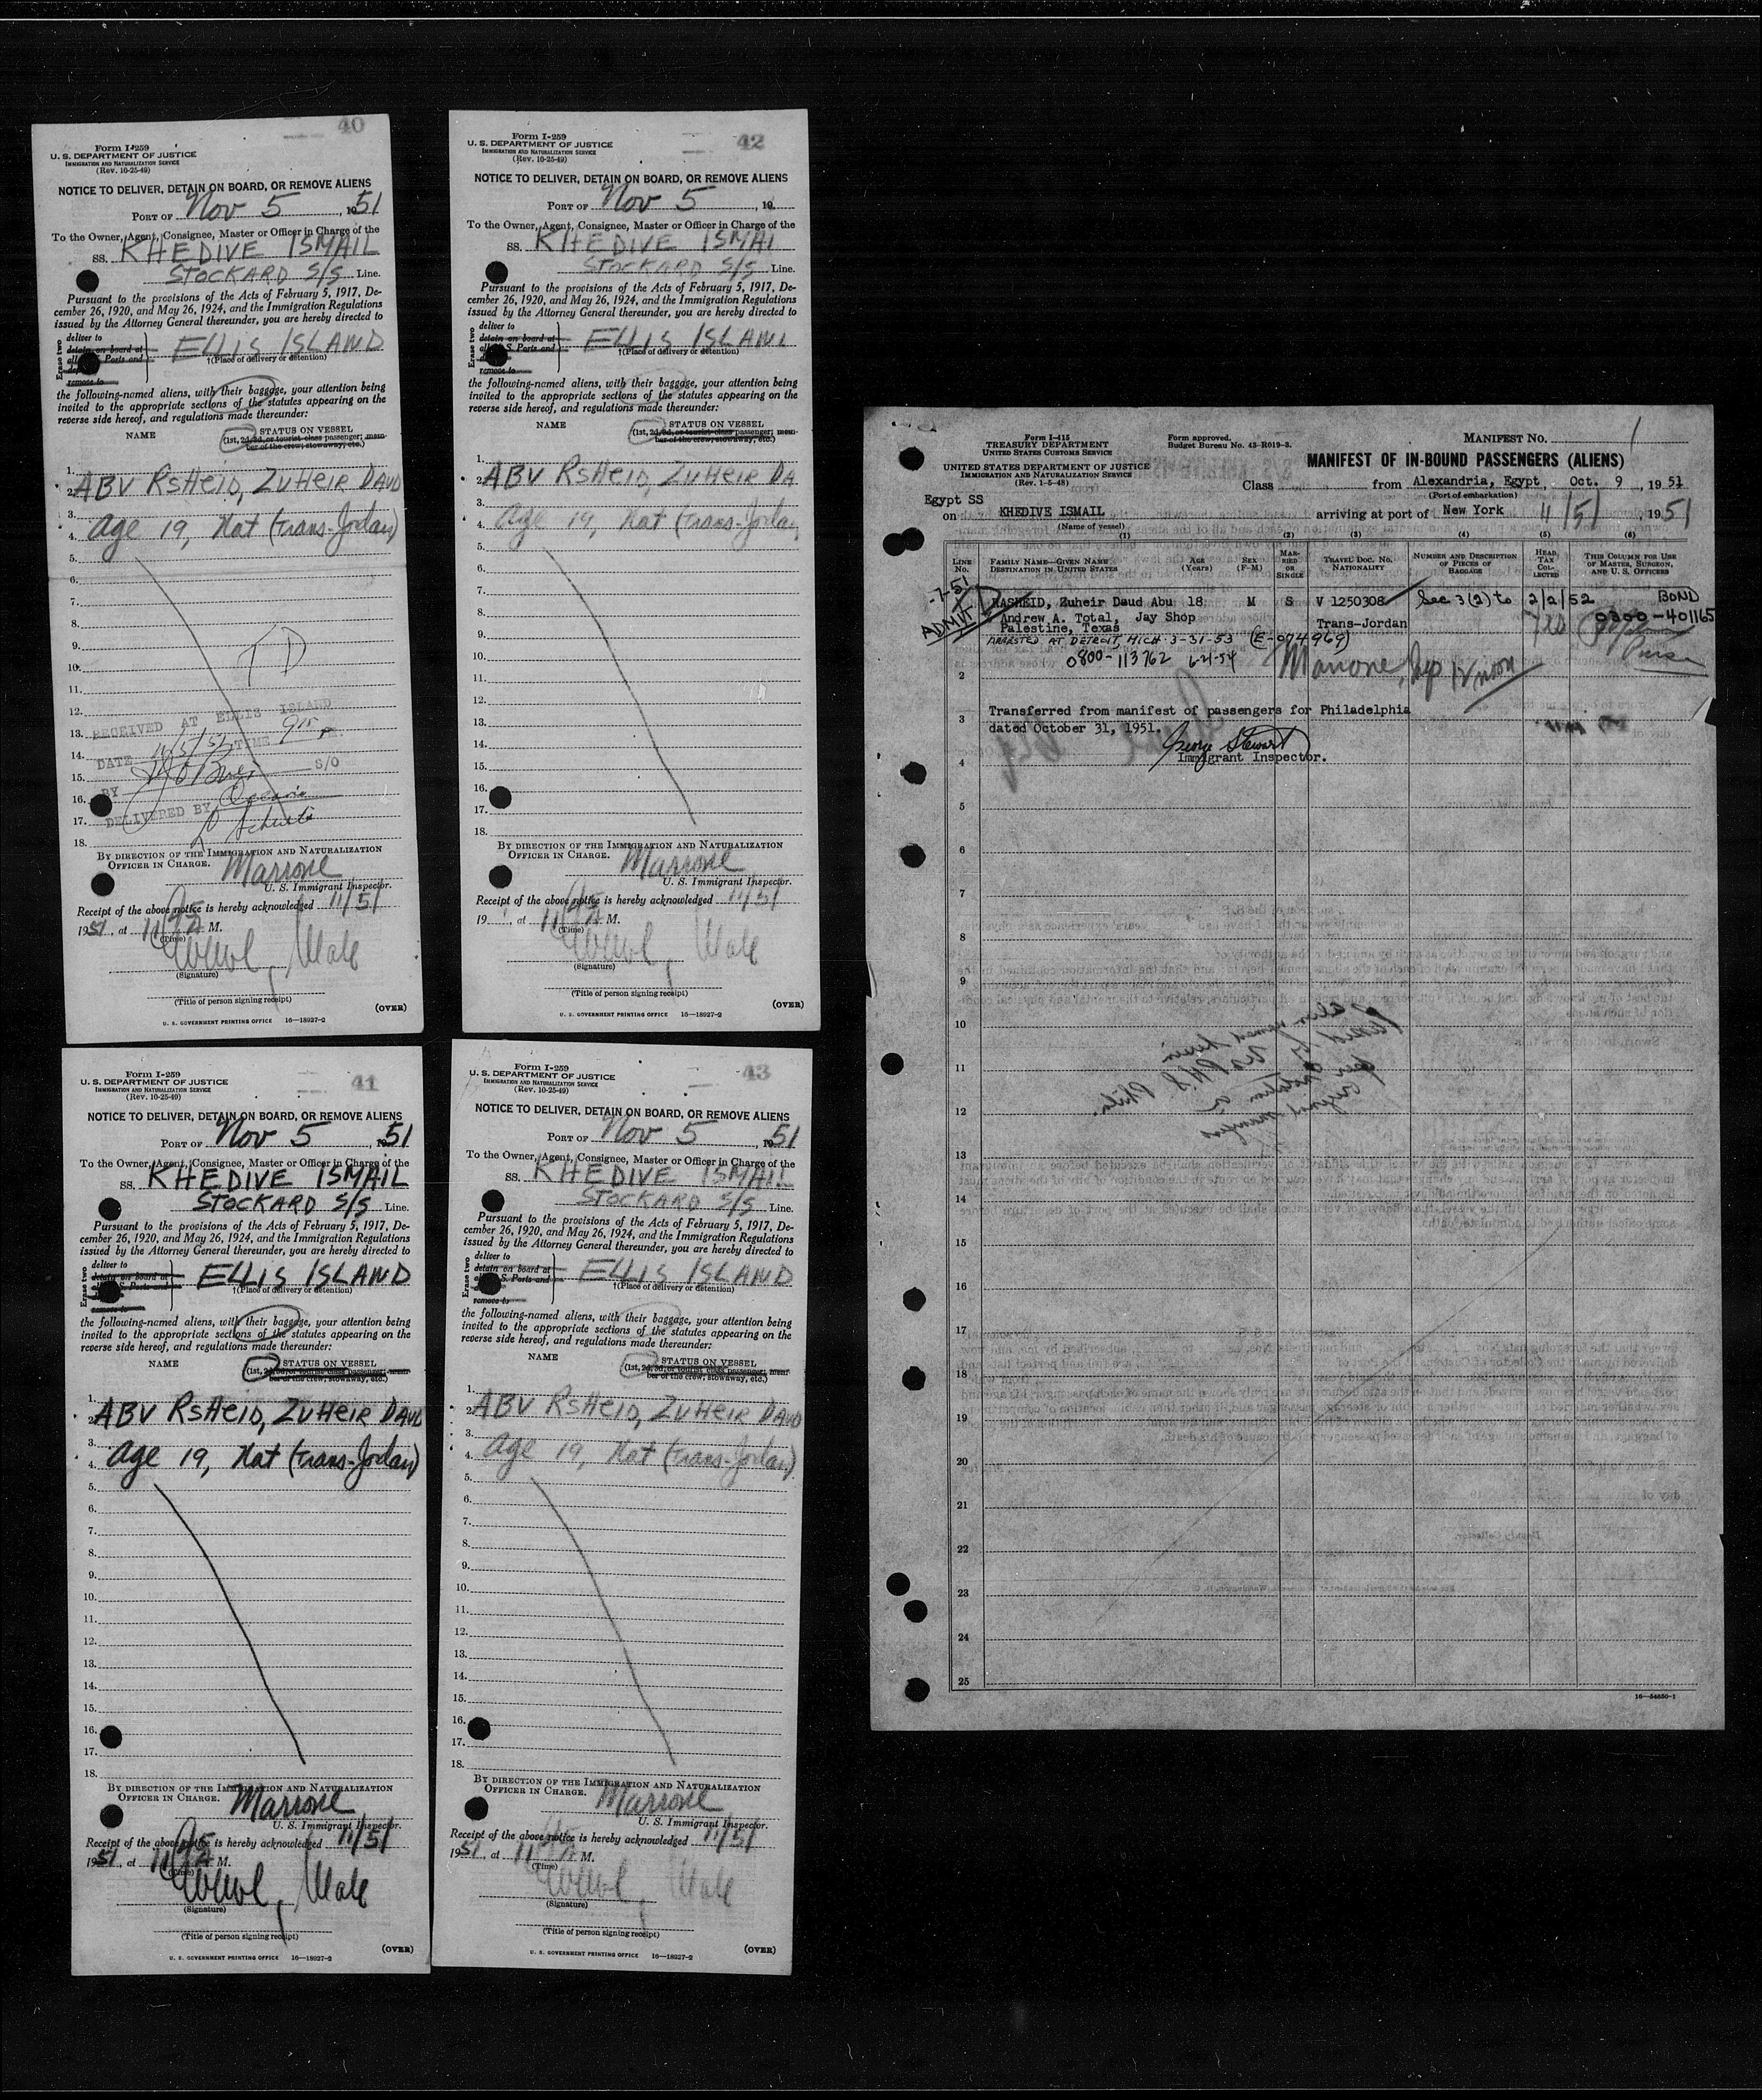 40
Form I-259
U. S. DEPARTMENT OF JUSTICE
IMMIGRATION AND NATURALIZATION SERVICE
(Rev. 10-25-49)
NOTICE TO DELIVER, DETAIN ON BOARD, OR REMOVE ALIENS
PORT OF Nov 5, 1951
To the Owner, Agent, Consignee, Master or Officer in Charge of the
SS. KHEDIVE ISMAIL
STOCKARD S/S Line.
Pursuant to the provisions of the Acts of February 5, 1917, De-
cember 26, 1920, and May 26, 1924, and the Immigration Regulations
issued by the Attorney General thereunder, you are hereby directed to
Erase two
deliver to
detain on board at
all U. S. Ports and
remove to
ELLIS ISLAND
†(Place of delivery or detention)
the following-named aliens, with their baggage, your attention being
invited to the appropriate sections of the statutes appearing on the
reverse side hereof, and regulations made thereunder:
NAME
STATUS ON VESSEL
(1st, 2d, 3d, or tourist class passenger; mem-
ber of the crew; stowaway, etc.)
1.
2. ABV RSHEID, ZUHEIR DAUD
3.
4. Age 19, Nat (Trans-Jordan)
5.
6.
7.
8.
9.
TD
10.
11.
12.
RECEIVED AT ELLIS ISLAND
13.
DATE 11/5/51 TIME 915 P
14.
15.
BY S/O
16.
DELIVERED BY
17.
18.
BY DIRECTION OF THE IMMIGRATION AND NATURALIZATION
OFFICER IN CHARGE.
Marrone
U. S. Immigrant Inspector.
Receipt of the above notice is hereby acknowledged 11/5/
1951, at 11 A M.
(Time)
(Signature)
(Title of person signing receipt)
(OVER)
U. S. GOVERNMENT PRINTING OFFICE 16—18927-2
42
Form I-259
U. S. DEPARTMENT OF JUSTICE
IMMIGRATION AND NATURALIZATION SERVICE
(Rev. 10-25-49)
NOTICE TO DELIVER, DETAIN ON BOARD, OR REMOVE ALIENS
PORT OF Nov 5, 19
To the Owner, Agent, Consignee, Master or Officer in Charge of the
SS. KHEDIVE ISMAI
STOCKARD S/S Line.
Pursuant to the provisions of the Acts of February 5, 1917, De-
cember 26, 1920, and May 26, 1924, and the Immigration Regulations
issued by the Attorney General thereunder, you are hereby directed to
Erase two
deliver to
detain on board at
all U. S. Ports and
remove to
ELLIS ISLAN
†(Place of delivery or detention)
the following-named aliens, with their baggage, your attention being
invited to the appropriate sections of the statutes appearing on the
reverse side hereof, and regulations made thereunder:
NAME
STATUS ON VESSEL
(1st, 2d, 3d, or tourist class passenger; mem-
ber of the crew; stowaway, etc.)
1.
2. ABV RSHEID, ZUHEIR DA
3.
4. Age 19, Nat (Trans-Jorda
5.
6.
7.
8.
9.
10.
11.
12.
13.
14.
15.
16.
17.
18.
BY DIRECTION OF THE IMMIGRATION AND NATURALIZATION
OFFICER IN CHARGE.
Marrone
U. S. Immigrant Inspector.
Receipt of the above notice is hereby acknowledged 11/5/
19 , at 11 A M.
(Time)
(Signature)
(Title of person signing receipt)
(OVER)
U. S. GOVERNMENT PRINTING OFFICE 16—18927-2
41
Form I-259
U. S. DEPARTMENT OF JUSTICE
IMMIGRATION AND NATURALIZATION SERVICE
(Rev. 10-25-49)
NOTICE TO DELIVER, DETAIN ON BOARD, OR REMOVE ALIENS
PORT OF Nov 5, 1951
To the Owner, Agent, Consignee, Master or Officer in Charge of the
SS. KHEDIVE ISMAIL
STOCKARD S/S Line.
Pursuant to the provisions of the Acts of February 5, 1917, De-
cember 26, 1920, and May 26, 1924, and the Immigration Regulations
issued by the Attorney General thereunder, you are hereby directed to
Erase two
deliver to
detain on board at
all U. S. Ports and
remove to
ELLIS ISLAND
†(Place of delivery or detention)
the following-named aliens, with their baggage, your attention being
invited to the appropriate sections of the statutes appearing on the
reverse side hereof, and regulations made thereunder:
NAME
STATUS ON VESSEL
(1st, 2d, 3d, or tourist class passenger; mem-
ber of the crew; stowaway, etc.)
1.
2. ABV RSHEID, ZUHEIR DAUD
3.
4. Age 19, Nat (Trans-Jordan)
5.
6.
7.
8.
9.
10.
11.
12.
13.
14.
15.
16.
17.
18.
BY DIRECTION OF THE IMMIGRATION AND NATURALIZATION
OFFICER IN CHARGE.
Marrone
U. S. Immigrant Inspector.
Receipt of the above notice is hereby acknowledged 11/5/
1951, at 11 A M.
(Time)
(Signature)
(Title of person signing receipt)
(OVER)
U. S. GOVERNMENT PRINTING OFFICE 16—18927-2
43
Form I-259
U. S. DEPARTMENT OF JUSTICE
IMMIGRATION AND NATURALIZATION SERVICE
(Rev. 10-25-49)
NOTICE TO DELIVER, DETAIN ON BOARD, OR REMOVE ALIENS
PORT OF Nov 5, 1951
To the Owner, Agent, Consignee, Master or Officer in Charge of the
SS. KHEDIVE ISMAIL
STOCKARD S/S Line.
Pursuant to the provisions of the Acts of February 5, 1917, De-
cember 26, 1920, and May 26, 1924, and the Immigration Regulations
issued by the Attorney General thereunder, you are hereby directed to
Erase two
deliver to
detain on board at
all U. S. Ports and
remove to
ELLIS ISLAND
†(Place of delivery or detention)
the following-named aliens, with their baggage, your attention being
invited to the appropriate sections of the statutes appearing on the
reverse side hereof, and regulations made thereunder:
NAME
STATUS ON VESSEL
(1st, 2d, 3d, or tourist class passenger; mem-
ber of the crew; stowaway, etc.)
1.
2. ABV RSHEID, ZUHEIR DAUD
3.
4. Age 19, Nat (Trans-Jordan)
5.
6.
7.
8.
9.
10.
11.
12.
13.
14.
15.
16.
17.
18.
BY DIRECTION OF THE IMMIGRATION AND NATURALIZATION
OFFICER IN CHARGE.
Marrone
U. S. Immigrant Inspector.
Receipt of the above notice is hereby acknowledged 11/5/
1951, at 11 A M.
(Time)
(Signature)
(Title of person signing receipt)
(OVER)
U. S. GOVERNMENT PRINTING OFFICE 16—18927-2
Form I-415
TREASURY DEPARTMENT
UNITED STATES CUSTOMS SERVICE
UNITED STATES DEPARTMENT OF JUSTICE
IMMIGRATION AND NATURALIZATION SERVICE
(Rev. 1-5-48)
Form approved.
Budget Bureau No. 43-R019-3.
MANIFEST NO. 1
MANIFEST OF IN-BOUND PASSENGERS (ALIENS)
Class from Alexandria, Egypt, Oct. 9, 1951
(Port of embarkation)
Egypt SS
on KHEDIVE ISMAIL arriving at port of New York 11/5/, 1951
(Name of vessel)
(1) (2) (3) (4) (5) (6)
LINE NO.
FAMILY NAME—GIVEN NAME
DESTINATION IN UNITED STATES
AGE (YEARS)
SEX (F-M)
MARRIED OR SINGLE
TRAVEL DOC. NO.
NATIONALITY
NUMBER AND DESCRIPTION OF PIECES OF BAGGAGE
HEAD TAX COLLECTED
THIS COLUMN FOR USE OF MASTER, SURGEON, AND U. S. OFFICERS
-7-51
ADMIT
RASHEID, Zuheir Daud Abu 18 M S V 1250308 Sec 3(2) to 2/2/52 BOND
0300-401165
Andrew A. Total, Jay Shop Trans-Jordan
Palestine, Texas
ARRESTED AT DETROIT, MICH. 3-31-53 (E-074969)
0800-113762 6-21-54
Marrone, Insp
2
3
Transferred from manifest of passengers for Philadelphia
dated October 31, 1951.
George Stewart
Immigrant Inspector.
4
5
6
7
8
9
10
11
12
13
14
15
16
17
18
19
20
21
22
23
24
25
16—54650-1